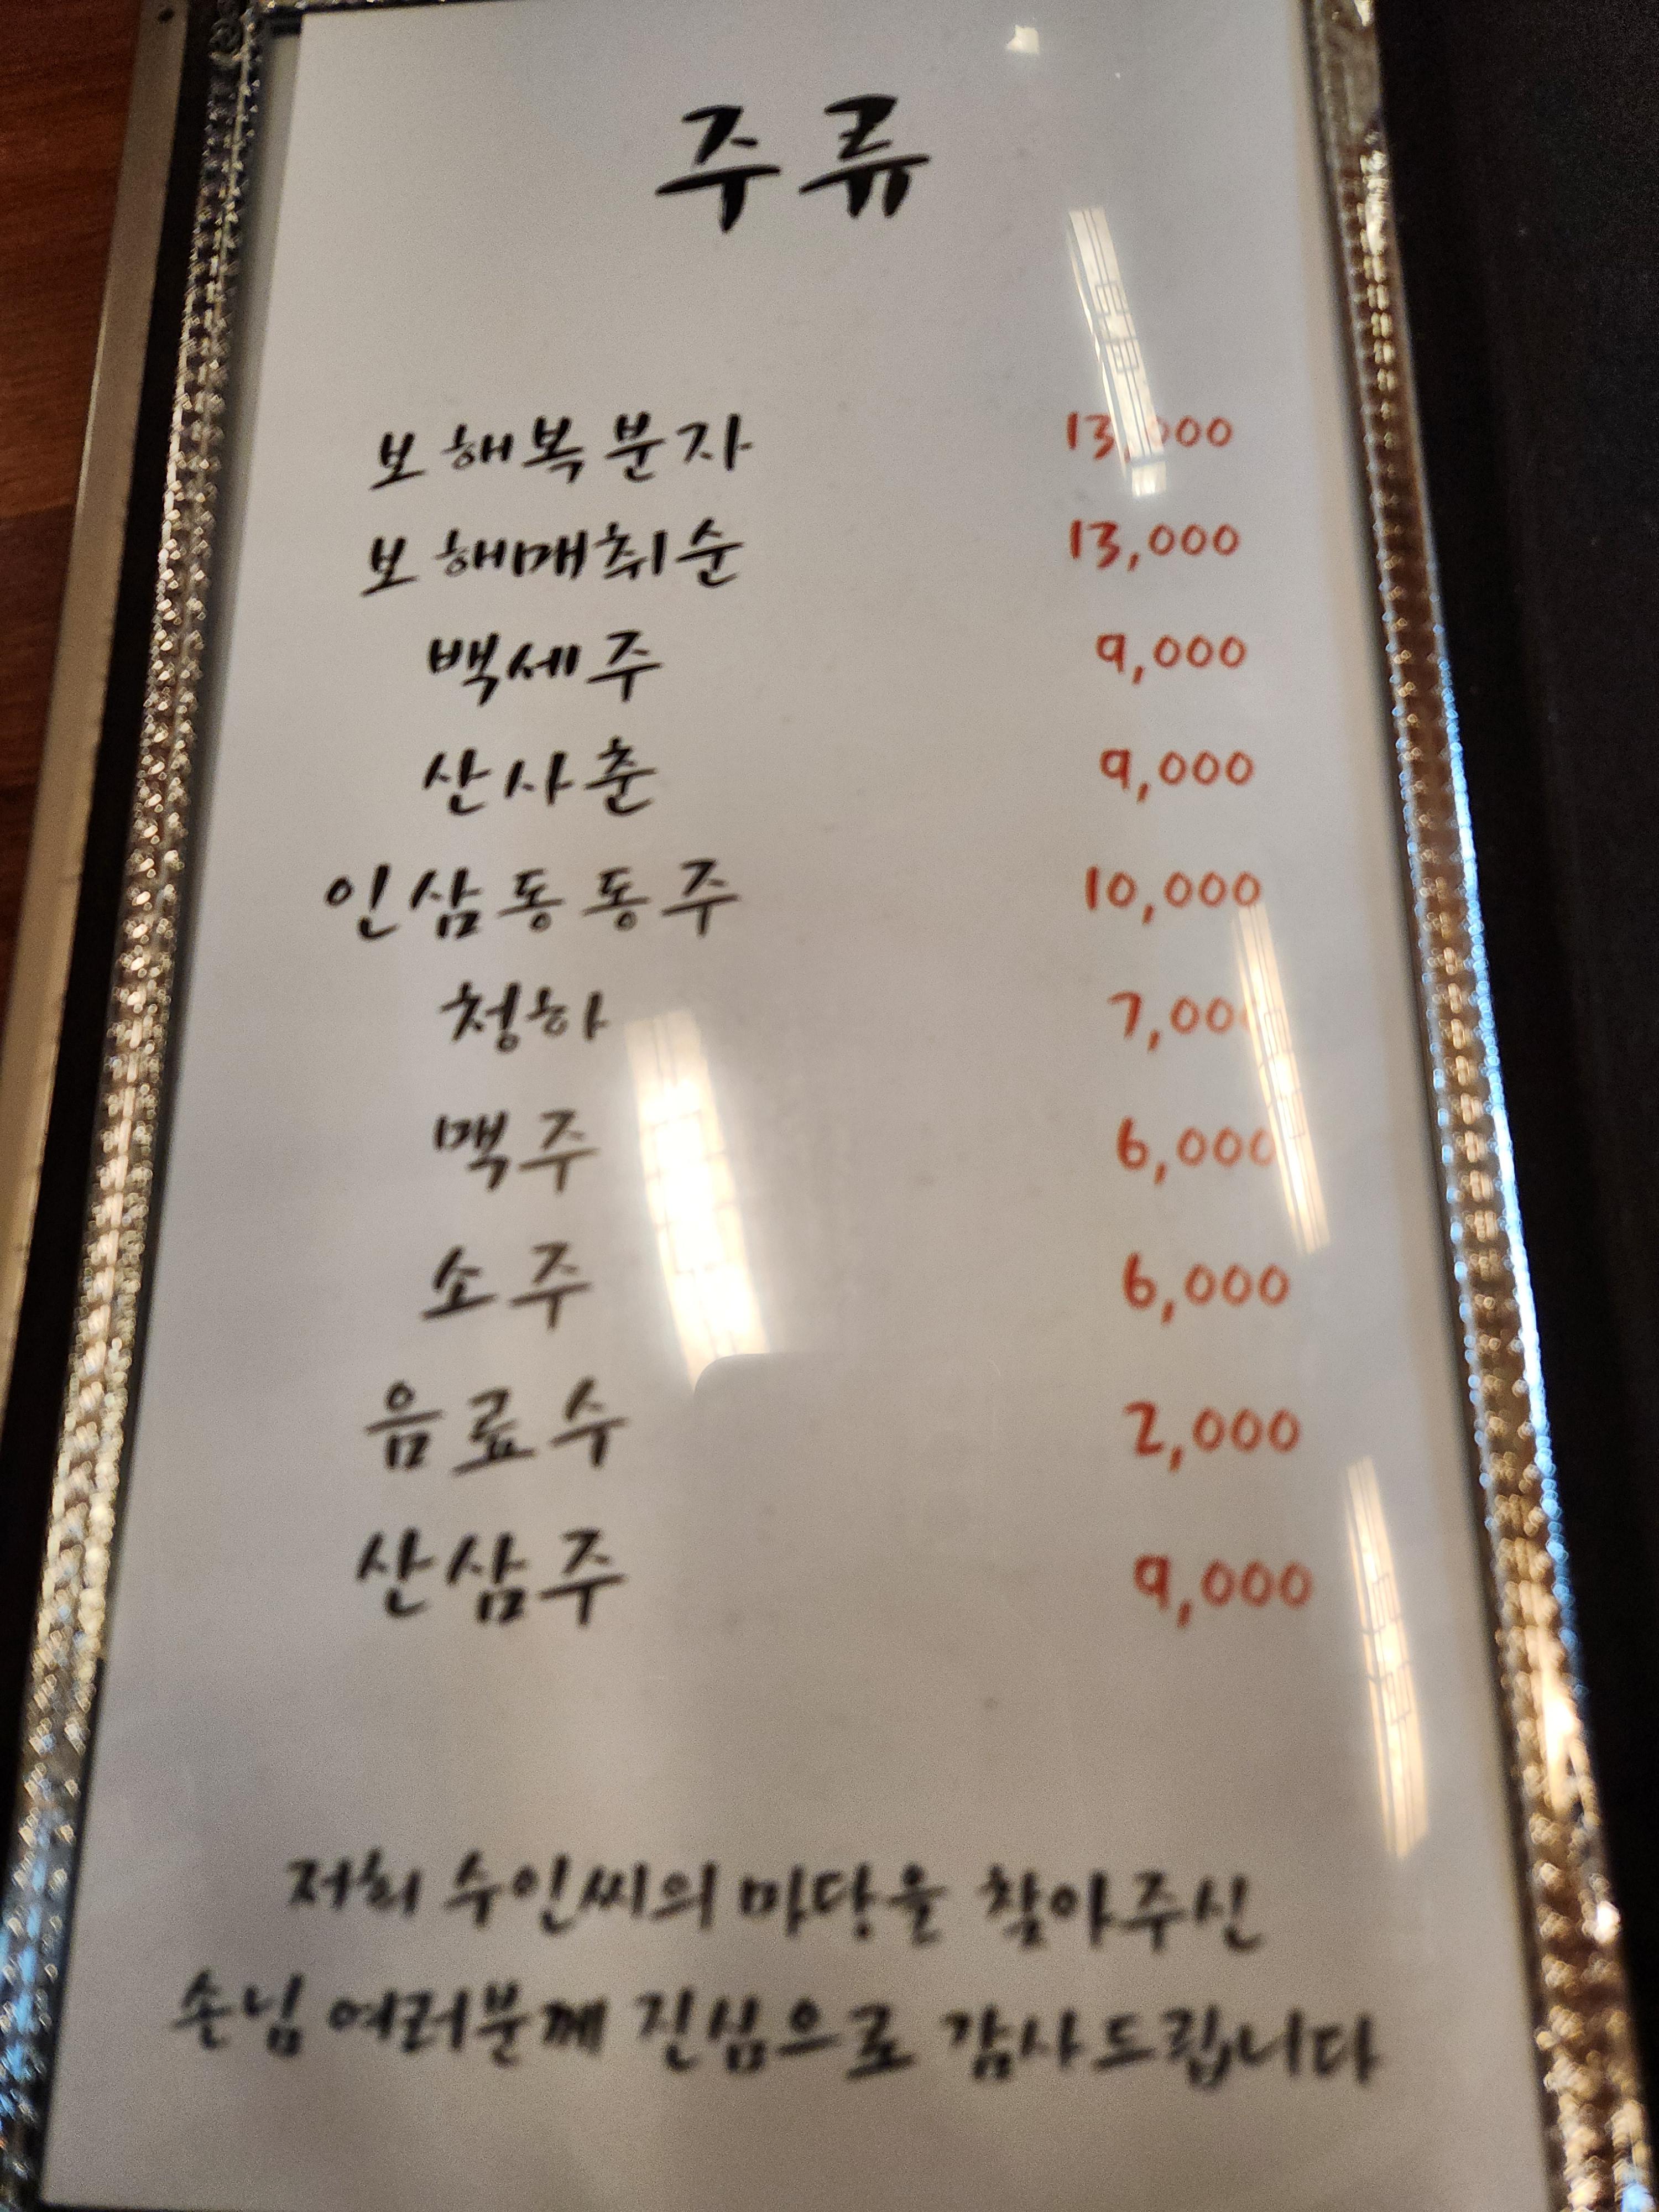 주류
보해복분자 13,000
보해매취순 13,000
백세주 9,000
산사춘 9,000
인삼동동주 10,000
청하 7,000
맥주 6,000
소주 6,000
음료수 2,000
산삼주 9,000
저희 수인씨의 마당을 찾아주신
손님 여러분께 진심으로 감사드립니다